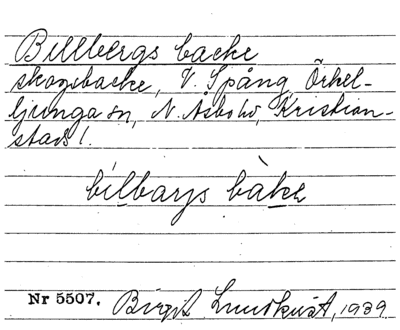 Billbergs backe
skogsbacke, V. Spång, Örkel-
ljunga sn, N. Åsbo hd, Kristian-
stads l.
bilbarys bàke
Nr 5507. Birgit Lundkvist, 1939